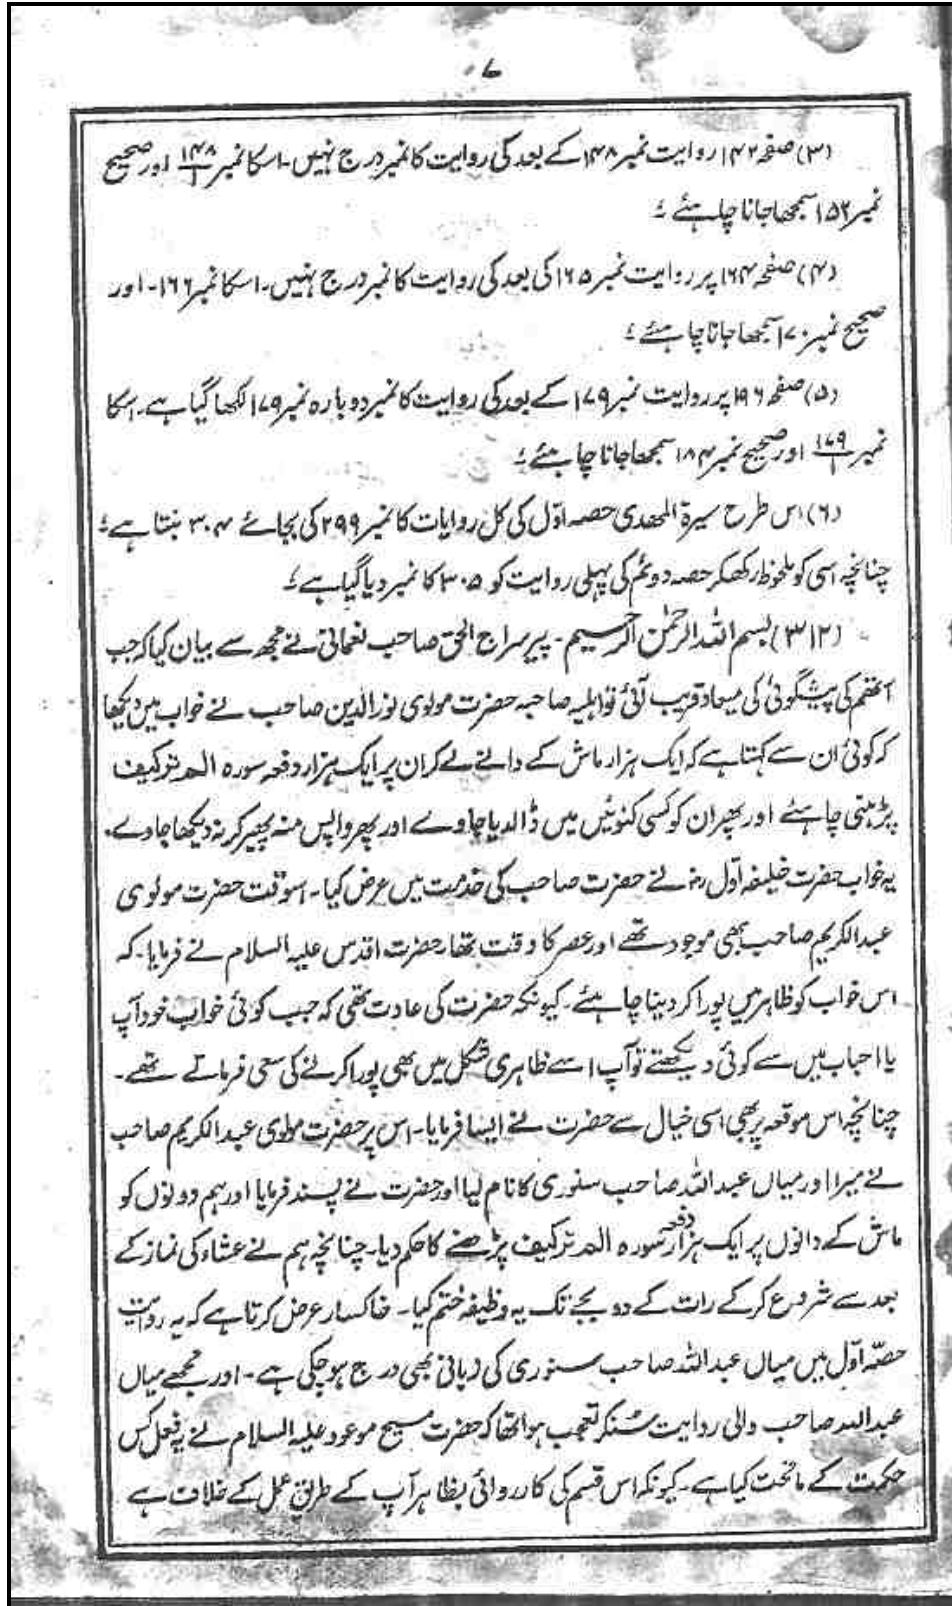 ۷
(۳) صفحہ ۱۴۲ روایت نمبر ۱۴۸ کے بعد کی روایت کا نمبر درج نہیں۔ اسکا نمبر ۱۴۸/۱ اور صحیح
نمبر ۱۵۲ سمجھا جانا چاہئے ؛
(۴) صفحہ ۱۶۴ پر روایت نمبر ۱۶۵ کی بعد کی روایت کا نمبر درج نہیں۔ اسکا نمبر ۱۶۶۔ اور
صحیح نمبر ۱۷۰ سمجھا جانا چاہئے ؛
(۵) صفحہ ۱۹۶ پر روایت نمبر ۱۷۹ کے بعد کی روایت کا نمبر دوبارہ نمبر ۱۷۹ لکھا گیا ہے۔ اسکا
نمبر ۱۷۹/۱ اور صحیح نمبر ۱۸۴ سمجھا جانا چاہئے ؛
(۶) اس طرح سیرۃ المہدی حصہ اوّل کی کل روایات کا نمبر ۲۹۹ کی بجائے ۳۰۴ بنتا ہے ؛
چنانچہ اسی کو ملحوظ رکھکر حصہ دوئم کی پہلی روایت کو ۳۰۵ کا نمبر دیا گیا ہے ؛
(۳۱۲) بسم اللہ الرحمٰن الرحیم۔ پیر سراج الحق صاحب نعمانی نے مجھ سے بیان کیا کہ جب
آتھم کی پیشگوئی کی میعاد قریب آئی تو اہلیہ صاحبہ حضرت مولوی نور الدین صاحب نے خواب میں دیکھا
کہ کوئی ان سے کہتا ہے کہ ایک ہزار ماش کے دانے لے کر ان پر ایک ہزار دفعہ سورہ الم ترکیف
پڑہنی چاہئے اور پھر ان کو کسی کنوئیں میں ڈالدیا جاوے اور پھر واپس منہ پھیر کر نہ دیکھا جاوے۔
یہ خواب حضرت خلیفہ اوّل رضہ نے حضرت صاحب کی خدمت میں عرض کیا۔ اسوقت حضرت مولوی
عبدالکریم صاحب بھی موجود تھے اور عصر کا وقت تھا۔ حضرت اقدس علیہ السلام نے فرمایا۔ کہ
اس خواب کو ظاہر میں پورا کر دینا چاہئے۔ کیونکہ حضرت کی عادت تھی کہ جب کوئی خواب خود آپ
یا احباب میں سے کوئی دیکھتے تو آپ اسے ظاہری شکل میں بھی پورا کرنے کی سعی فرماتے تھے۔
چنانچہ اس موقعہ پر بھی اسی خیال سے حضرت نے ایسا فرمایا۔ اس پر حضرت مولوی عبدالکریم صاحب
نے میرا اور میاں عبداللہ صاحب سنوری کا نام لیا اور حضرت نے پسند فرمایا اور ہم دونوں کو
ماش کے دانوں پر ایک ہزار دفعہ سورہ الم ترکیف پڑھنے کا حکم دیا۔ چنانچہ ہم نے عشاء کی نماز کے
بعد سے شروع کر کے رات کے دو بجے تک یہ وظیفہ ختم کیا۔ خاکسار عرض کرتا ہے کہ یہ روایت
حصّہ اوّل میں میاں عبداللہ صاحب سنوری کی زبانی بھی درج ہو چکی ہے۔ اور مجھے میاں
عبداللہ صاحب والی روایت سُنکر تعجب ہوا تھا کہ حضرت مسیح موعود علیہ السلام نے یہ فعل کس
حکمت کے ماتحت کیا ہے۔ کیونکہ اس قسم کی کارروائی بظاہر آپ کے طریق عمل کے خلاف ہے